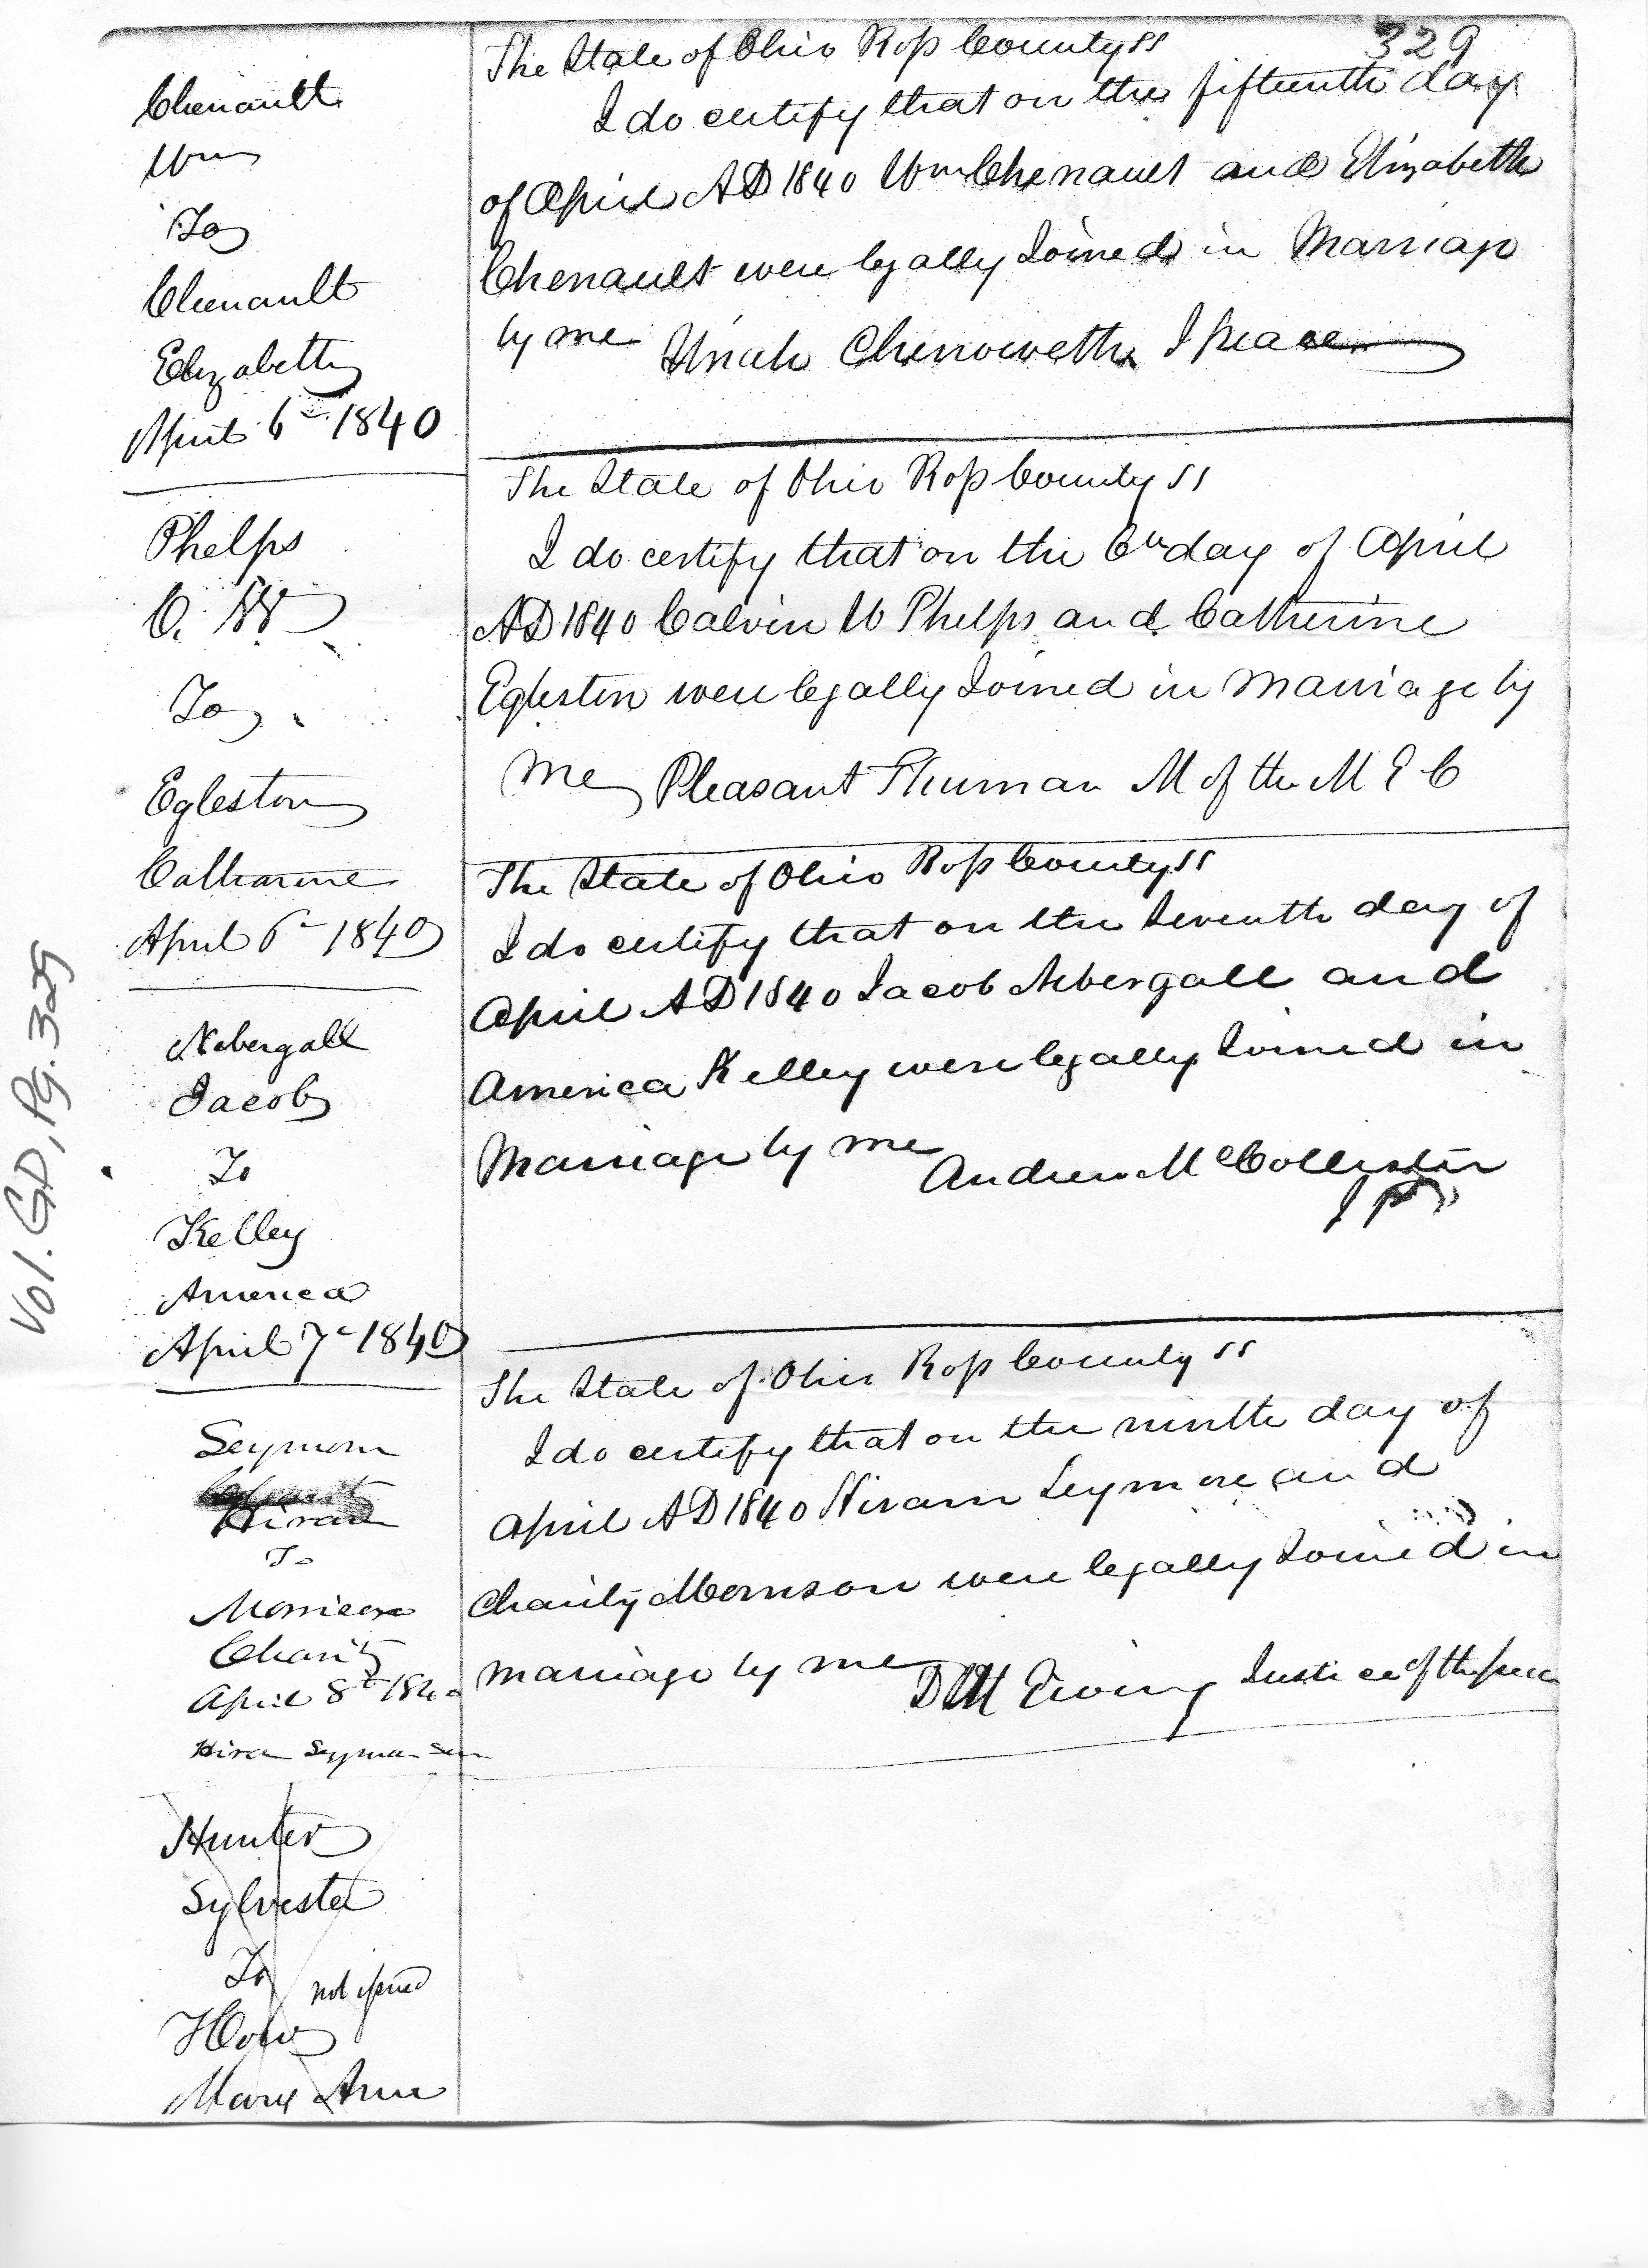 329
Chenault
Wm
To
Chenault
Elizabeth
April 6th 1840
The State of Ohio Ross County ss
I do certify that on the fifteenth day
of April AD 1840 Wm Chenault and Elizabeth
Chenault were legally Joined in Marriage
by me Uriah Chenoweth J peace
Phelps
C. W
To
Egleston
Catharine
April 6th 1840
The State of Ohio Ross County ss
I do certify that on the 6th day of April
AD 1840 Calvin W Phelps and Catherine
Egleston were legally Joined in Marriage by
me Pleasant Thurman M of the M E C
Nebergall
Jacob
To
Kelley
America
April 7th 1840
The State of Ohio Ross County ss
I do certify that on the Seventh day of
April AD 1840 Jacob Nebergall and
America Kelley were legally Joined in
Marriage by me Andrew McCollister
J P
Seymour
Hiram
To
Morrison
Charity
April 8th 1840
Hiram Seymour
The State of Ohio Ross County ss
I do certify that on the ninth day of
April AD 1840 Hiram Seymore and
Charity Morrison were legally Joined in
marriage by me Ewing Justice of the peace
Hunter
Sylvester
To
not issued
How
Mary Ann
Vol. GD, Pg. 329